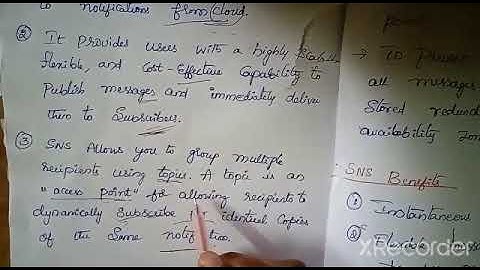 to notifications from Cloud.
② It provides users with a highly Scalable
flexible, and Cost-Effective Capability to
Publish messages and immediately deliver
them to Subscribers.
③ SNS Allows you to group multiple
recipients using topics. A topic is an
"access point" for allowing recipients to
dynamically Subscribe for identical Copies
of the Same notification.
→ To prevent
all messages
Stored redund
availability zon
SNS Benefits
① Instantaneous
② Flexible
XRecorder